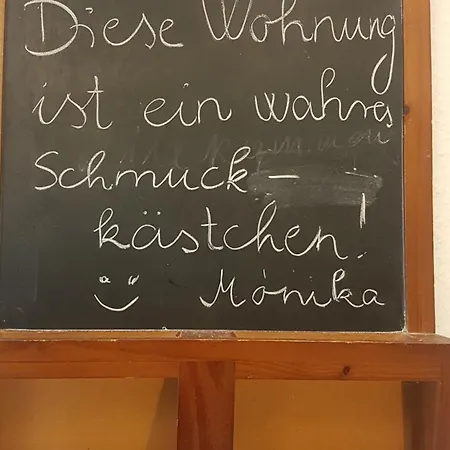 Diese Wohnung
ist ein wahres
Schmuck-
kästchen!
Monika